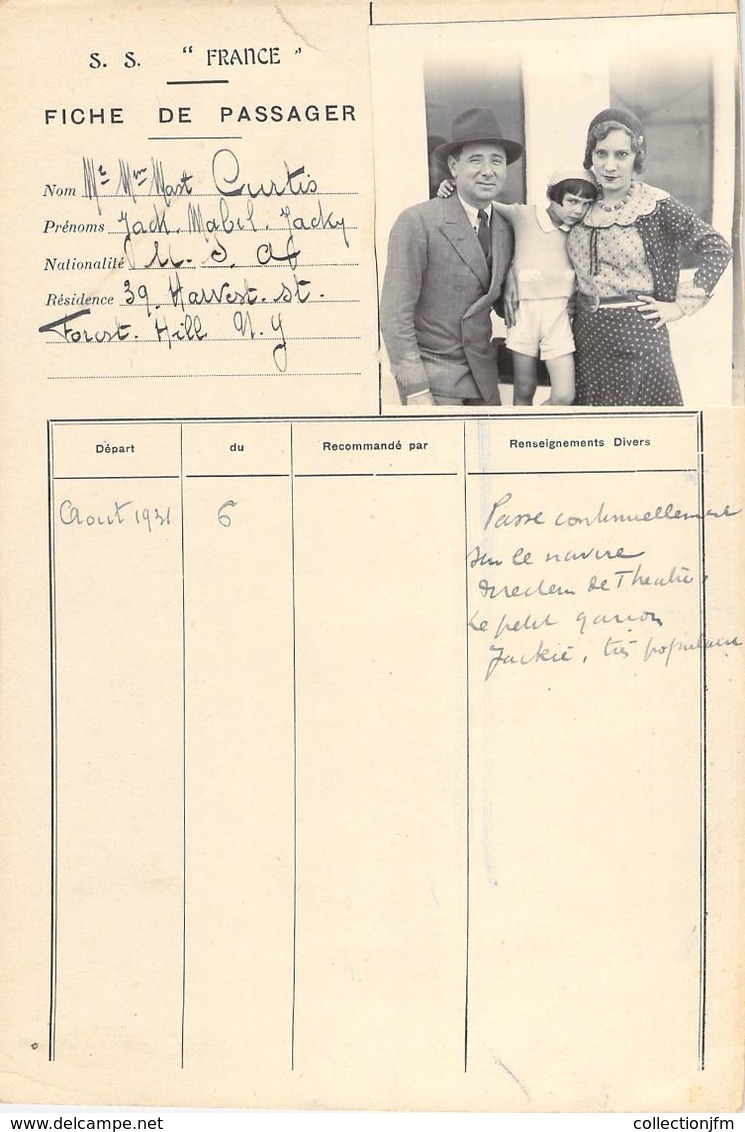 S. S. " FRANCE "
FICHE DE PASSAGER
Nom Mr Mme Mast Curtis
Prénoms Jack. Mabel. Jacky
Nationalité U. S. A
Résidence 39. Harvest. St.
Forest. Hill N. Y
Départ du Recommandé par Renseignements Divers
Aout 1931 6 Passe continuellement
sur le navire
Directeur de Theatre.
Le petit garçon
Jackie, très populaire
www.delcampe.net collectionjfm